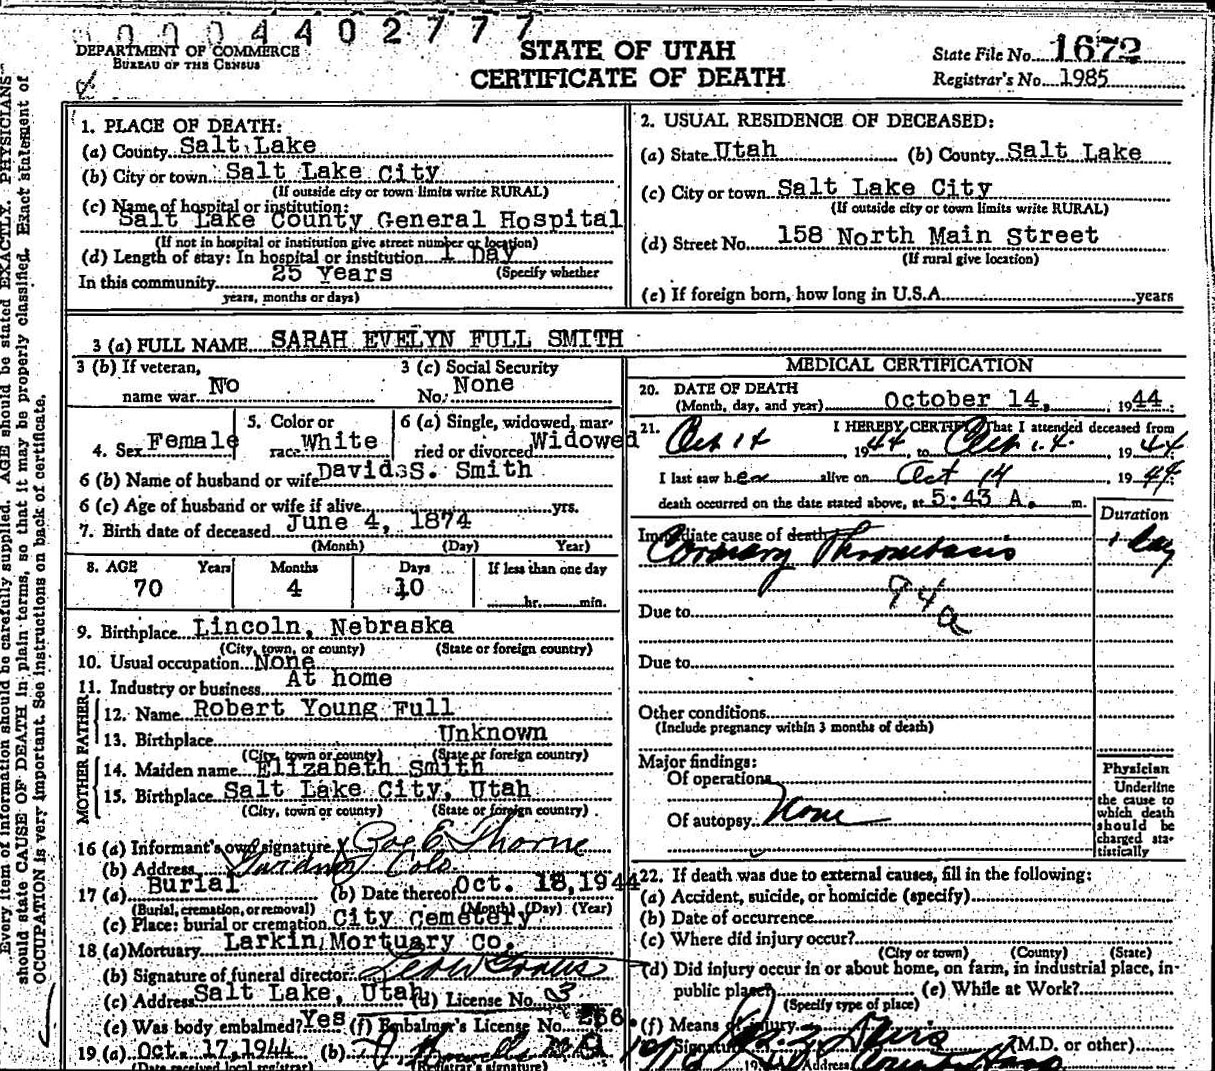 0004402777
DEPARTMENT OF COMMERCE
BUREAU OF THE CENSUS
STATE OF UTAH
CERTIFICATE OF DEATH
State File No. 1672
Registrar's No. 1985
Every item of information should be carefully supplied. AGE should be stated EXACTLY. PHYSICIANS
should state CAUSE OF DEATH in plain terms, so that it may be properly classified. Exact statement of
OCCUPATION is very important. See instructions on back of certificate.
1. PLACE OF DEATH:
(a) County Salt Lake
(b) City or town Salt Lake City
(If outside city or town limits write RURAL)
(c) Name of hospital or institution:
Salt Lake County General Hospital
(If not in hospital or institution give street number or location)
(d) Length of stay: In hospital or institution 1 Day
(Specify whether
In this community 25 Years
years, months or days)
2. USUAL RESIDENCE OF DECEASED:
(a) State Utah (b) County Salt Lake
(c) City or town Salt Lake City
(If outside city or town limits write RURAL)
(d) Street No. 158 North Main Street
(If rural give location)
(e) If foreign born, how long in U.S.A. years
3 (a) FULL NAME SARAH EVELYN FULL SMITH
3 (b) If veteran,
name war No
3 (c) Social Security
No. None
4. Sex Female
5. Color or
race White
6 (a) Single, widowed, mar-
ried or divorced Widowed
6 (b) Name of husband or wife David S. Smith
6 (c) Age of husband or wife if alive yrs.
7. Birth date of deceased June 4, 1874
(Month) (Day) Year)
8. AGE Years Months Days If less than one day
70 4 10 hr. min.
9. Birthplace Lincoln, Nebraska
(City, town, or county) (State or foreign country)
10. Usual occupation None
11. Industry or business At home
FATHER
12. Name Robert Young Full
13. Birthplace Unknown
(City, town or county) (State or foreign country)
MOTHER
14. Maiden name Elizabeth Smith
15. Birthplace Salt Lake City, Utah
(City, town or county) (State or foreign country)
16 (a) Informant's own signature E. Thorne
(b) Address Colo.
17 (a) Burial (b) Date thereof Oct. 18, 1944
(Burial, cremation, or removal) (Month) (Day) (Year)
(c) Place: burial or cremation City Cemetery
18 (a) Mortuary Larkin Mortuary Co.
(b) Signature of funeral director:
(c) Address Salt Lake, Utah (d) License No. 3
(e) Was body embalmed? Yes (f) Embalmer's License No. 266
19 (a) Oct. 17, 1944 (b)
(Date received local registrar) (Registrar's signature)
MEDICAL CERTIFICATION
20. DATE OF DEATH
(Month, day, and year) October 14, 1944
21. I HEREBY CERTIFY That I attended deceased from
Oct 14 1944, to Oct 14, 1944
I last saw her alive on Oct 14 1944
death occurred on the date stated above, at 5:43 A. m.
Duration
Immediate cause of death
Coronary Thrombosis 1 day
94a
Due to
Due to
Other conditions
(Include pregnancy within 3 months of death)
Major findings:
Of operations
Of autopsy None
Physician
Underline
the cause to
which death
should be
charged sta-
tistically
22. If death was due to external causes, fill in the following:
(a) Accident, suicide, or homicide (specify)
(b) Date of occurrence
(c) Where did injury occur?
(City or town) (County) (State)
(d) Did injury occur in or about home, on farm, in industrial place, in
public place? (e) While at Work?
(Specify type of place)
(f) Means of injury
Signature (M.D. or other)
Address County Hosp